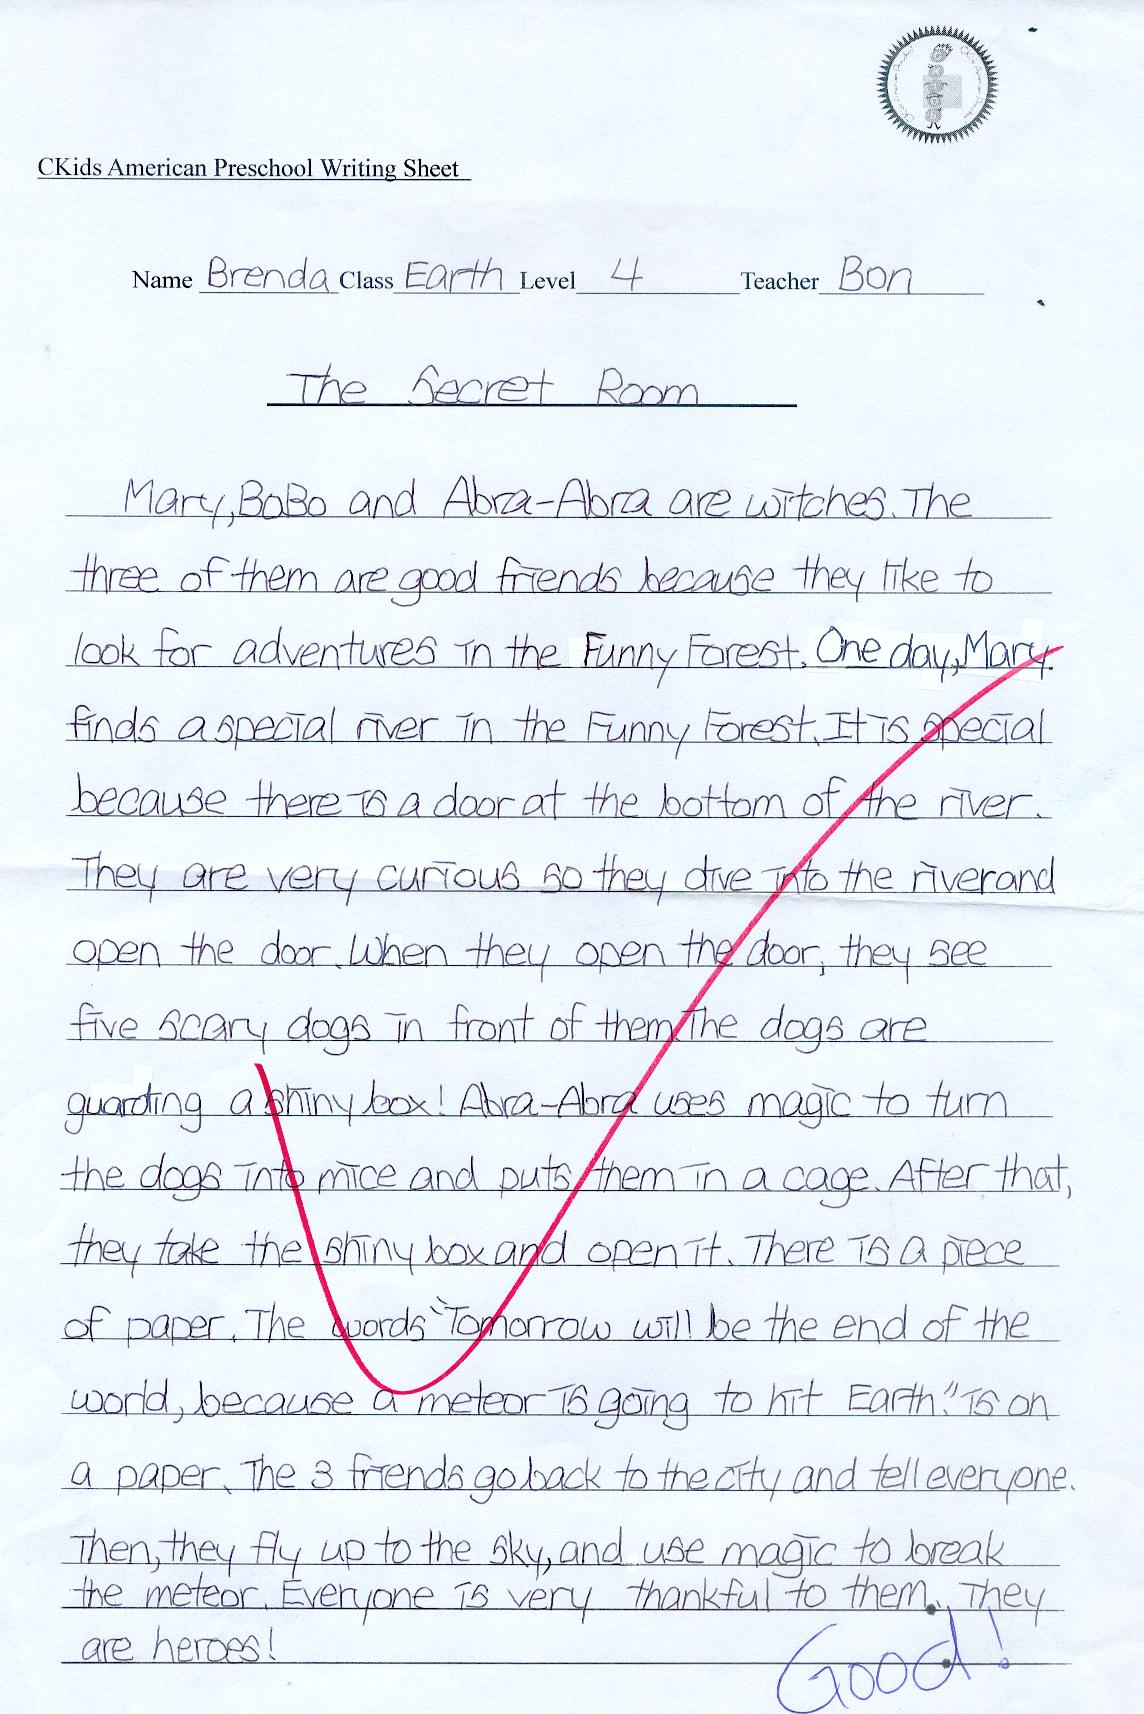 CKids American Preschool Writing Sheet
Name Brenda Class Earth Level 4 Teacher Bon
The Secret Room
Mary, BoBo and Abra-Abra are witches. The
three of them are good friends because they like to
look for adventures in the Funny Forest. One day, Mary
finds a special river in the Funny Forest. It is special
because there is a door at the bottom of the river.
They are very curious so they dive into the river and
open the door. When they open the door, they see
five scary dogs in front of them. The dogs are
guarding a shiny box! Abra-Abra uses magic to turn
the dogs into mice and puts them in a cage. After that,
they take the shiny box and open it. There is a piece
of paper. The words "Tomorrow will be the end of the
world, because a meteor is going to hit Earth." is on
a paper. The 3 friends go back to the city and tell everyone.
Then, they fly up to the sky, and use magic to break
the meteor. Everyone is very thankful to them. They
are heroes!
Good!